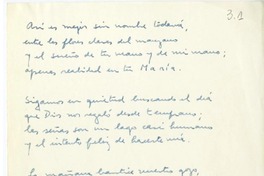 3.1
Así es mejor sin nombre todavía,
entre las flores claras del manzano
y el sueño de tu mano y de mi mano;
apenas realidad en tu María.
Sigamos en quietud buscando el día
que Dios nos regaló desde temprano;
las señas son un lago casi humano
y el intento feliz de hacerte mía.
La mañana bautice nuestro gozo,